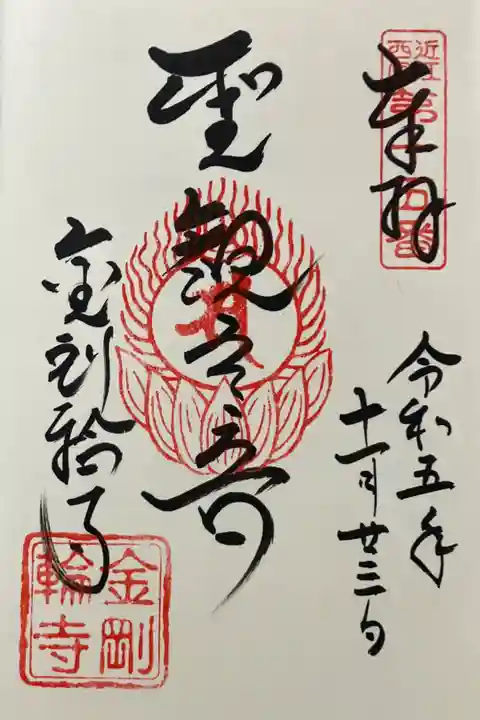 近江
西国
第十五番
奉拝
令和五年
十一月廿三日
聖観世音
金剛輪寺
金剛
輪寺